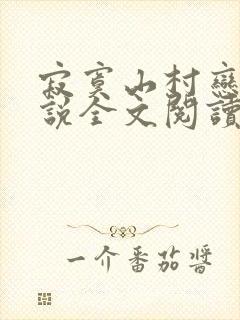 寂寞山村戀
說全文閱讀
一介番茄醬